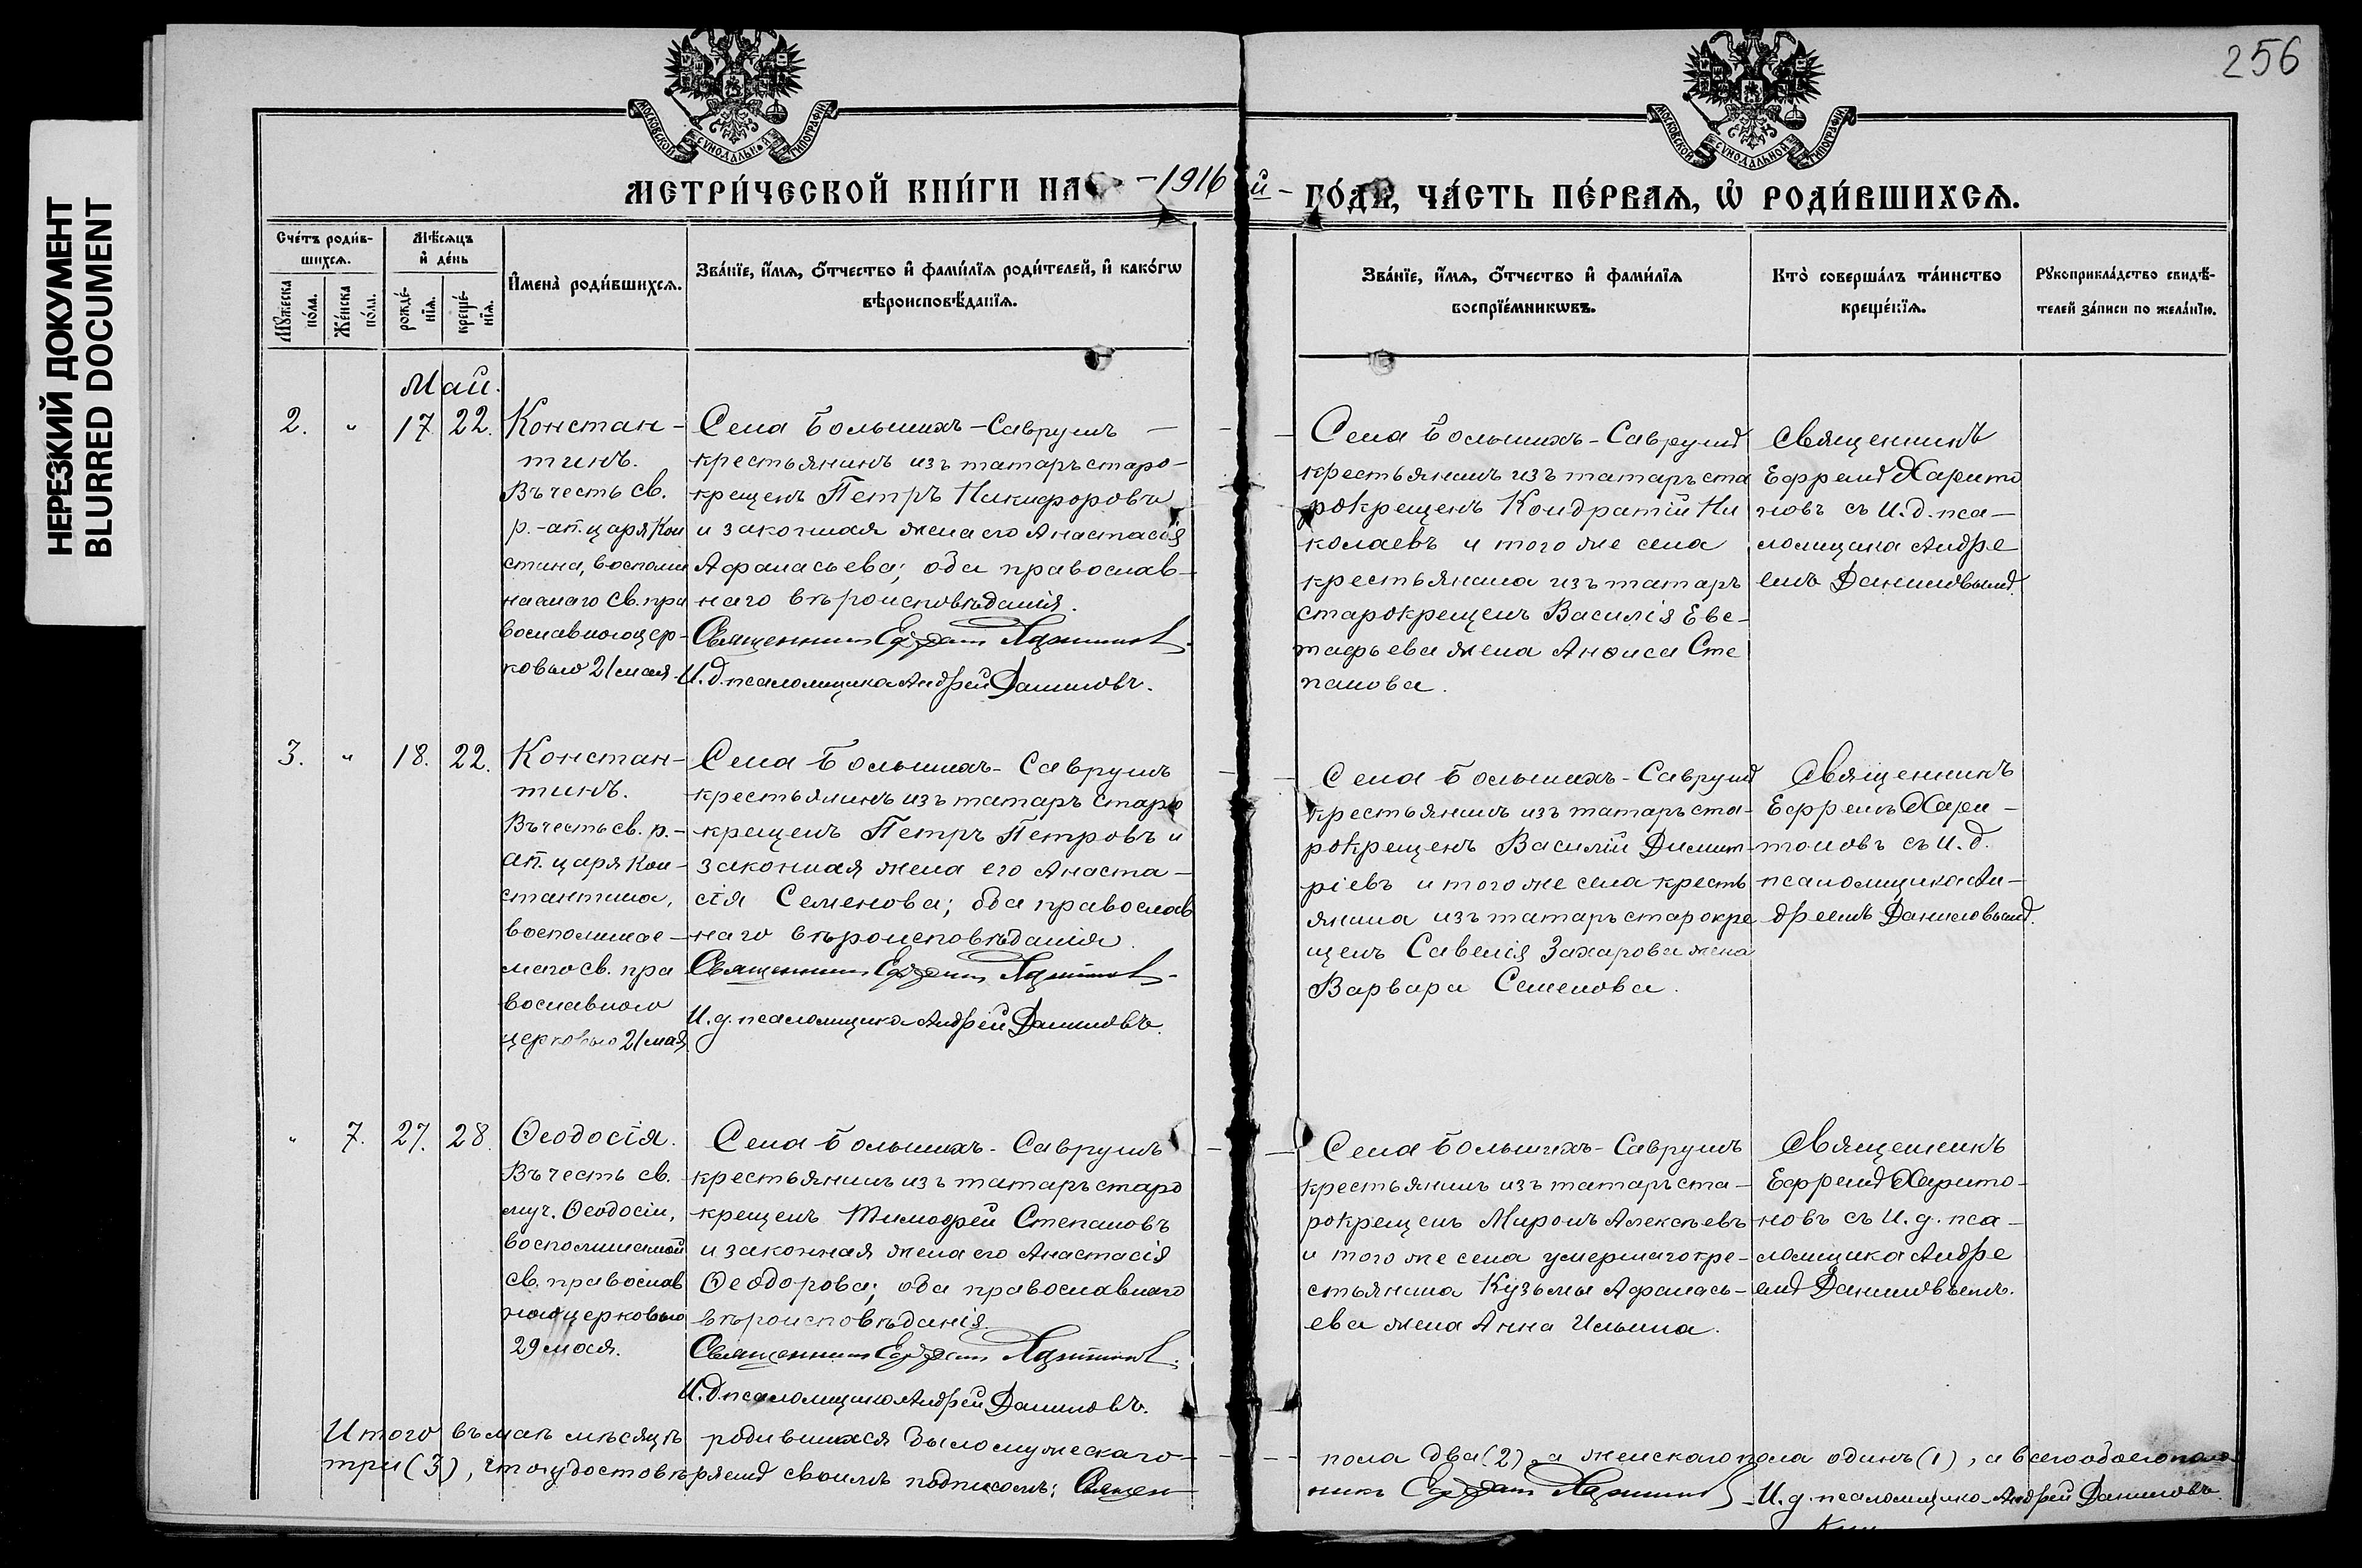 НЕРЕЗКИЙ ДОКУМЕНТ
BLURRED DOCUMENT
256
МОСКОВСКОЙ СѴНОДАЛЬНОЙ ТИПОГРАФІИ
МОСКОВСКОЙ СѴНОДАЛЬНОЙ ТИПОГРАФІИ
МЕТРИ́ЧЕСКОЙ КНИ́ГИ НА -1916 й- ГО́ДЪ, ЧА́СТЬ ПЕ́РВАѦ, Ѡ҆ РОДИ́ВШИХСѦ.
Сче́тъ роди́в-
шихсѧ.
Мꙋ́жеска
по́ла.
Же́нска
по́ла.
Мѣ́сѧцъ
и҆ де́нь
рожде́-
нїѧ.
креще́-
нїѧ.
И҆мена̀ роди́вшихсѧ.
Зва́нїе, и҆́мѧ, ѻ҆́тчество и҆ фами́лїѧ роди́телей, и҆ како́гѡ
вѣроисповѣ́данїѧ.
Зва́нїе, и҆́мѧ, ѻ҆́тчество и҆ фами́лїѧ
воспрїе́мникѡвъ.
Кто̀ соверша́лъ та́инство
креще́нїѧ.
Рꙋкоприкла́дство свидѣ́-
телей за́писи по жела́нїю.
Май.
2. " 17 22.
Констан-
тинъ.
Въ честь св.
р.-ап. царя Кон
стина, воспоми
наемаго св. пра
вославною цер-
ковью 21 мая.
Села Большихъ-Саврушъ
крестьянинъ изъ татаръ старо-
крещенъ Петръ Никифоровъ
и законная жена его Анастасія
Афанасьева; оба православ-
наго вѣроисповѣданія.
Священникъ Ефремъ Харитоновъ.
И.д. псаломщика Андрей Даниловъ.
Села Большихъ-Саврушъ
крестьянинъ изъ татаръ ста
рокрещенъ Кондратій Ни
колаевъ и того же села
крестьянина изъ татаръ
старокрещенъ Василія Евс-
тафьева жена Анѳиса Сте
панова.
Священникъ
Ефремъ Харито
новъ съ И.д. пса-
ломщика Андре
емъ Даниловымъ.
3. " 18. 22.
Констан-
тинъ.
Въ честь св. р.-
ап. царя Кон-
стантина,
воспоминае-
маго св. пра
вославною
церковью 21 мая
Села Большихъ-Саврушъ
крестьянинъ изъ татаръ старо
крещенъ Петръ Петровъ и
законная жена его Анаста-
сія Семенова; оба православ
наго вѣроисповѣданія.
Священникъ Ефремъ Харитоновъ.
И.д. псаломщика Андрей Даниловъ.
Села Большихъ-Саврушъ
крестьянинъ изъ татаръ ста-
рокрещенъ Василій Димит-
ріевъ и того же села кресть
янина изъ татаръ старокре
щенъ Савелія Захарова жена
Варвара Семенова.
Священникъ
Ефремъ Хари-
тоновъ съ И.д.
псаломщика Ан-
дреемъ Даниловымъ.
" 7. 27. 28.
Ѳеодосія.
Въ честь св.
муч. Ѳеодосіи,
воспоминаемой
св. православ
ною церковью
29 мая.
Села Большихъ-Саврушъ
крестьянинъ изъ татаръ старо
крещенъ Тимофей Степановъ
и законная жена его Анастасія
Ѳеодорова; оба православнаго
вѣроисповѣданія
Священникъ Ефремъ Харитоновъ.
И.д. псаломщика Андрей Даниловъ.
Села Большихъ-Саврушъ
крестьянинъ изъ татаръ ста-
рокрещенъ Миронъ Алексѣевъ
и того же села умершаго кре-
стьянина Кузьмы Афанась-
ева жена Анна Ильина.
Священникъ
Ефремъ Харито-
новъ съ И.д. пса-
ломщика Андре
емъ Даниловымъ.
Итого въ маѣ мѣсяцѣ родившихся было мужескаго пола два (2), а женскаго пола одинъ (1), а всего обоего пола
три (3), что и удостовѣряемъ своимъ подписомъ: Священ никъ Ефремъ Харитоновъ И.д. псаломщика Андрей Даниловъ